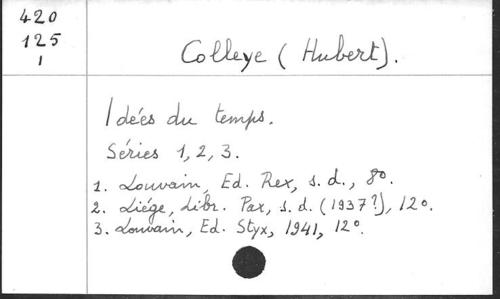 420
125
1
Colleye (Hubert).
Idées du temps.
Séries 1, 2, 3.
1. Louvain, Ed. Rex, s. d., 8º.
2. Liége, Libr. Pax, s. d. (1937?), 12º.
3. Louvain, Ed. Styx, 1941, 12º.